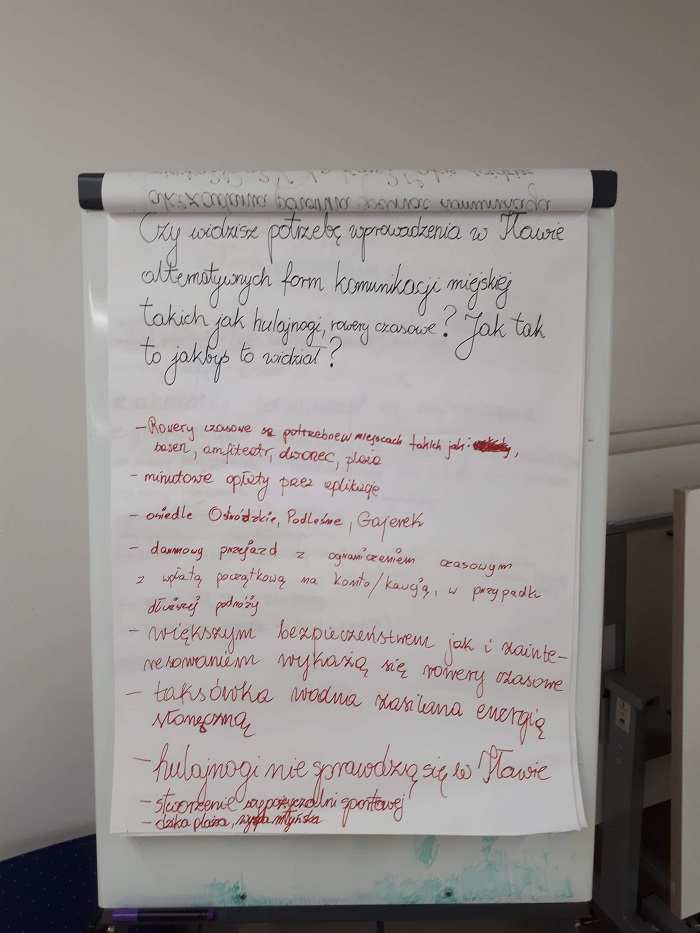 Czy widzisz potrzebę wprowadzenia w Iławie
alternatywnych form komunikacji miejskiej
takich jak hulajnogi, rowery czasowe? Jak tak
to jakbyś to widział?
- Rowery czasowe są potrzebne w miejscach takich jak: ,
basen, amfiteatr, dworzec, plaża
- minutowe opłaty przez aplikację
- osiedle Ostródzkie, Podleśne, Gajerek
- darmowy przejazd z ograniczeniem czasowym
z wpłatą początkową na konto/kaucją, w przypadku
dłuższej podróży
- większym bezpieczeństwem jak i zainte-
resowaniem wykażą się rowery czasowe
- taksówka wodna zasilana energią
słoneczną
- hulajnogi nie sprawdzą się w Iławie
- stworzenie wypożyczalni sportowej
- dzika plaża, wyspa młyńska